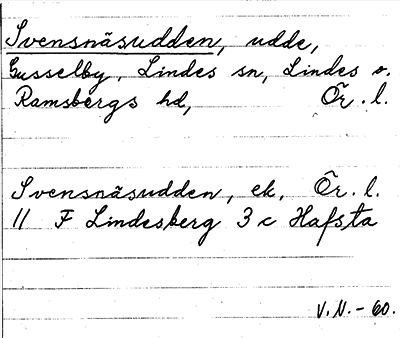 Svensnäsudden, udde,
Gusselby, Lindes sn, Lindes o.
Ramsbergs hd, Ör. l.
Svensnäsudden, ek. Ör. l.
11 F Lindesberg 3 c Hafsta
V.N. - 60.